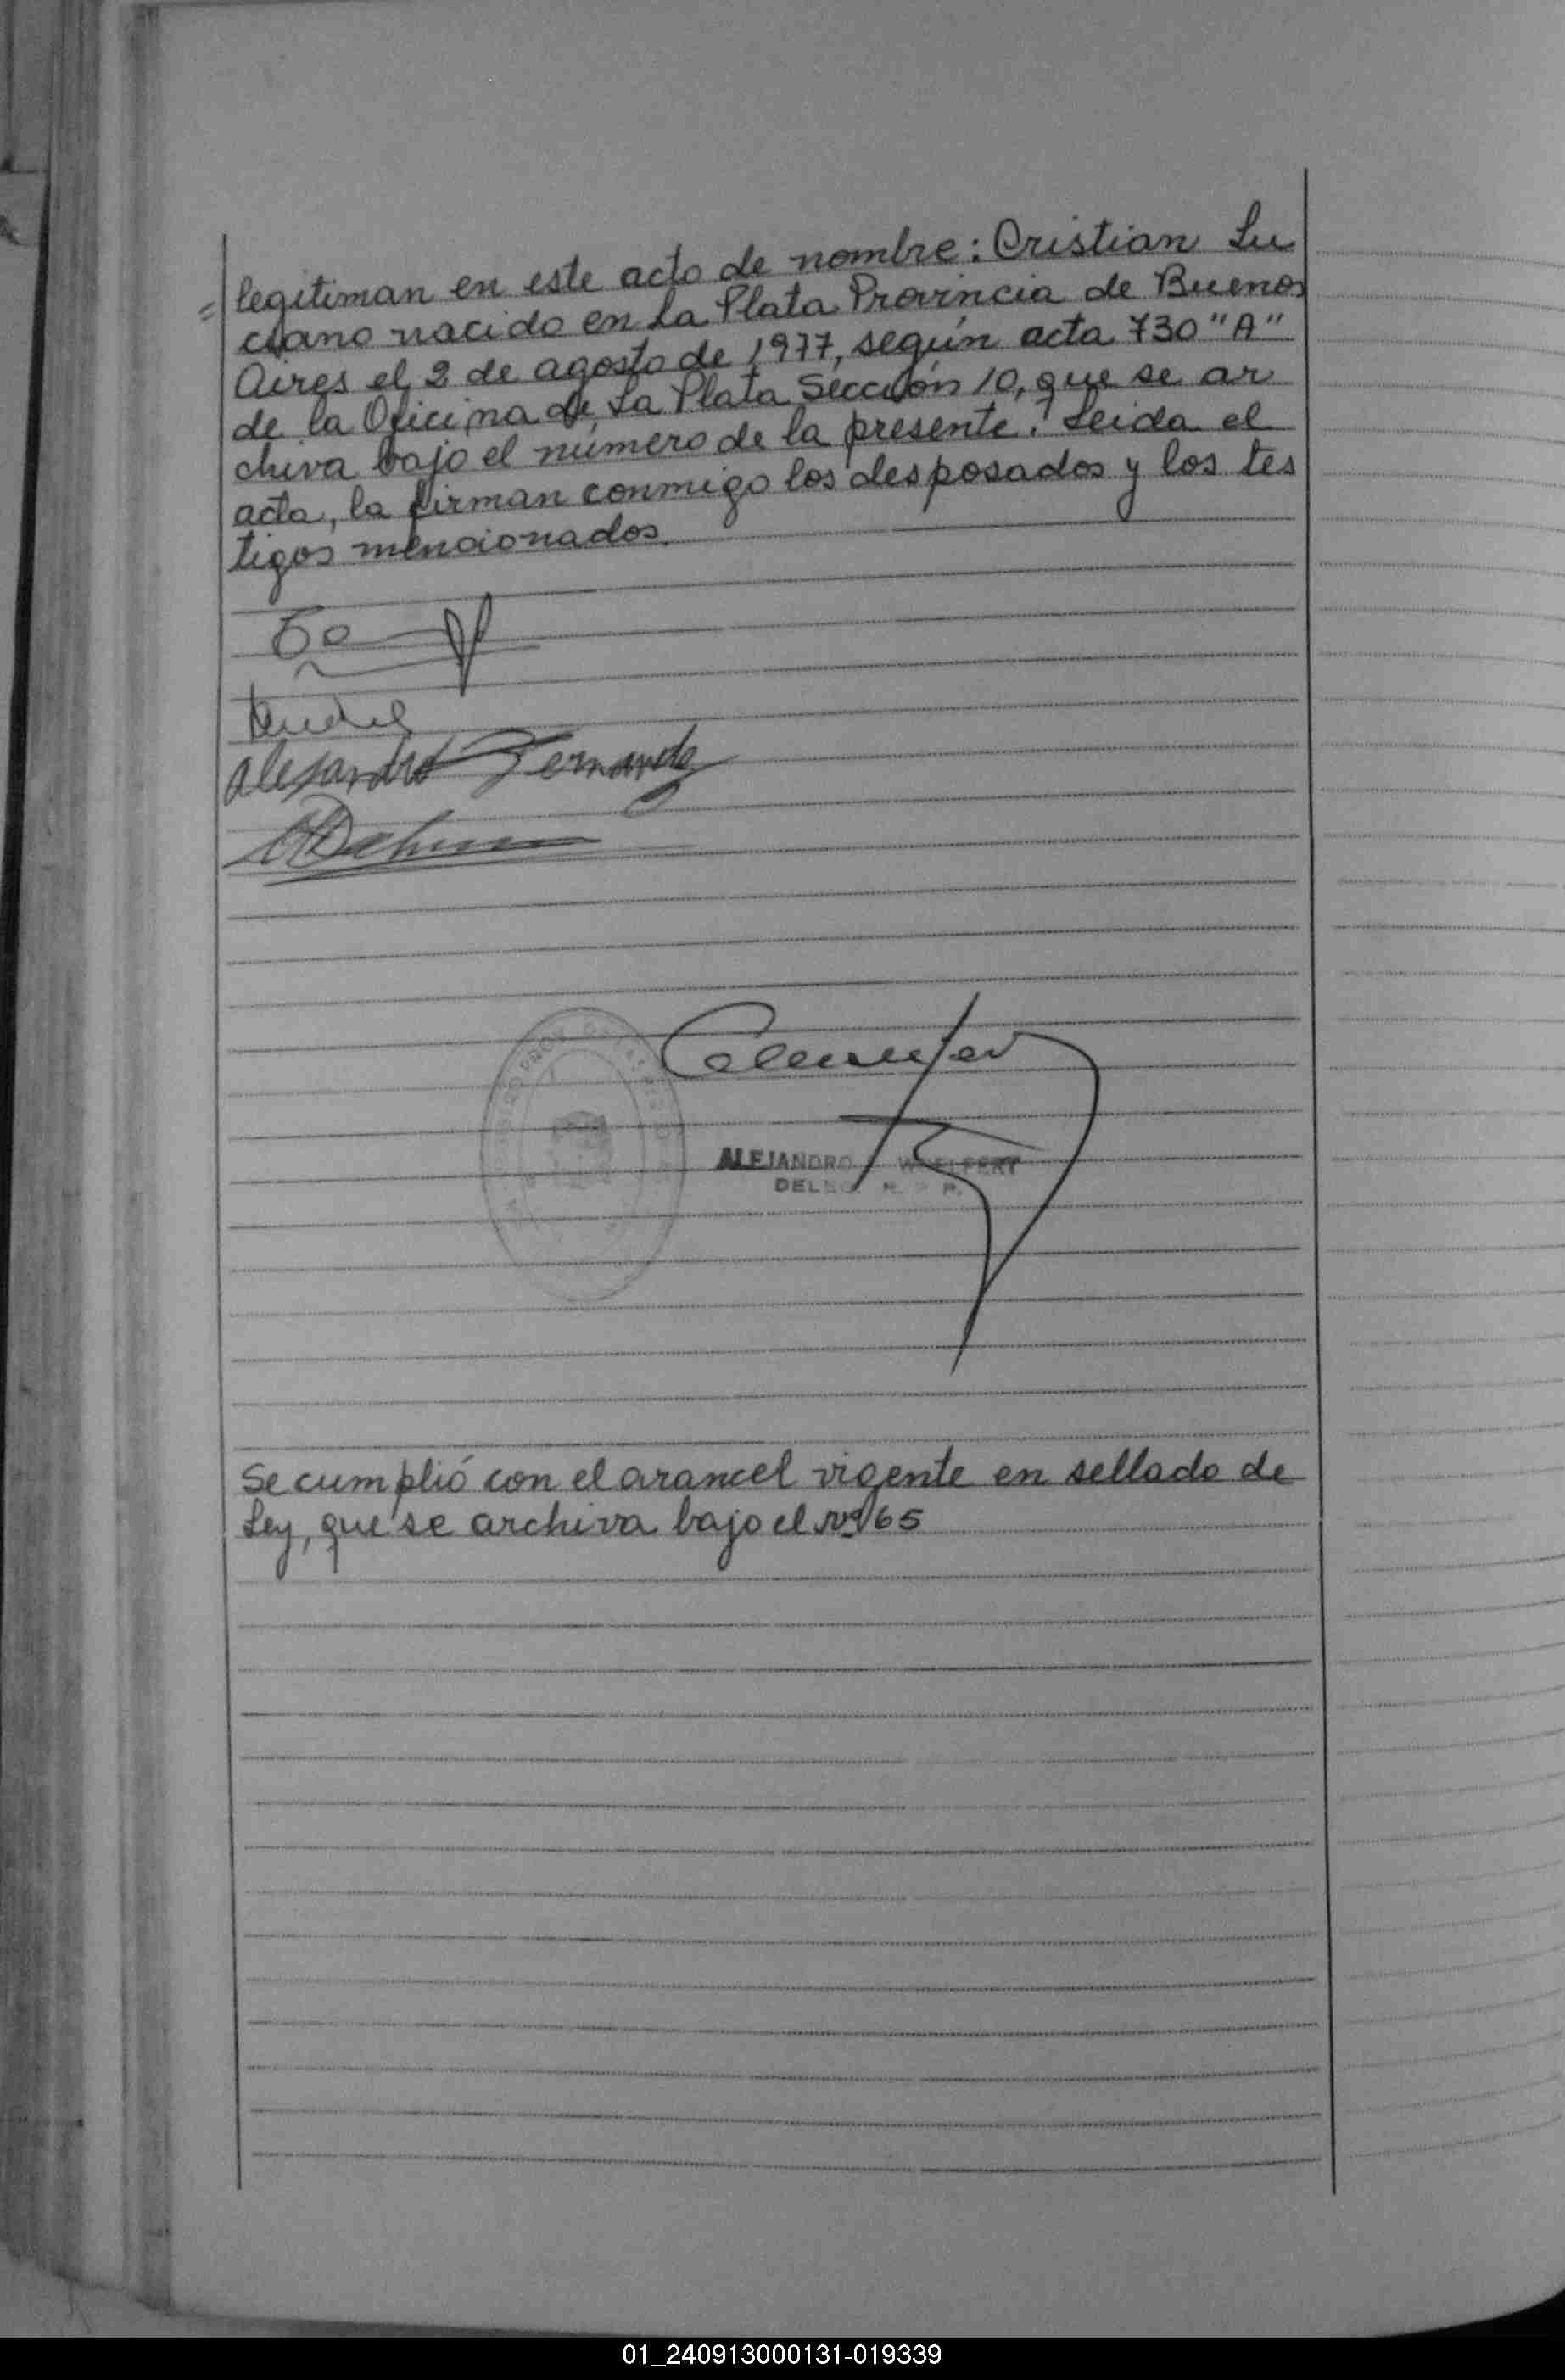 = legitiman en este acto de nombre: Cristian Lu
ciano nacido en La Plata Provincia de Buenos
Aires el 2 de agosto de 1977, según acta 730 "A"
de la Oficina de La Plata Sección 10, que se ar
chiva bajo el número de la presente. Leida el
acta, la firman conmigo los desposados y los tes
tigos mencionados.
Alejandro Fernandez
ALEJANDRO
DELEG.
Se cumplió con el arancel vigente en sellado de
Ley, que se archiva bajo el Nº 65
01_240913000131-019339